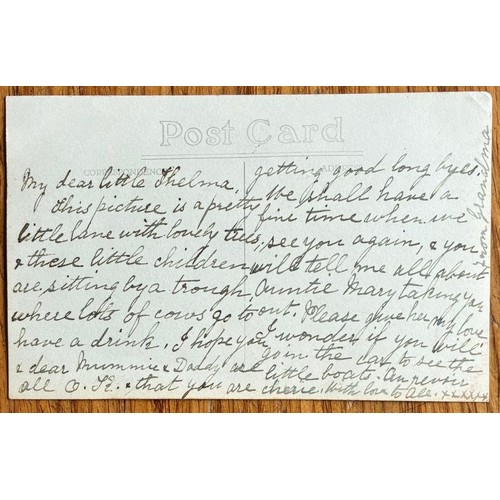 Post Card
CORRESPONDENCE
My dear little Thelma,
This picture is a pretty
little lane with lovely trees,
& these little children
are sitting by a trough,
where lots of cows go to
have a drink. I hope you
& dear Mummie & Daddy are
all O.K. & that you are
getting good long byes.
We shall have a
fine time when we
see you again, & you
will tell me all about
Auntie Mary taking you
out. Please give her my love
I wonder if you will
go in the car to see the
little boat. Au revoir
cherie. With love to all. xxxxxx
from Grandma